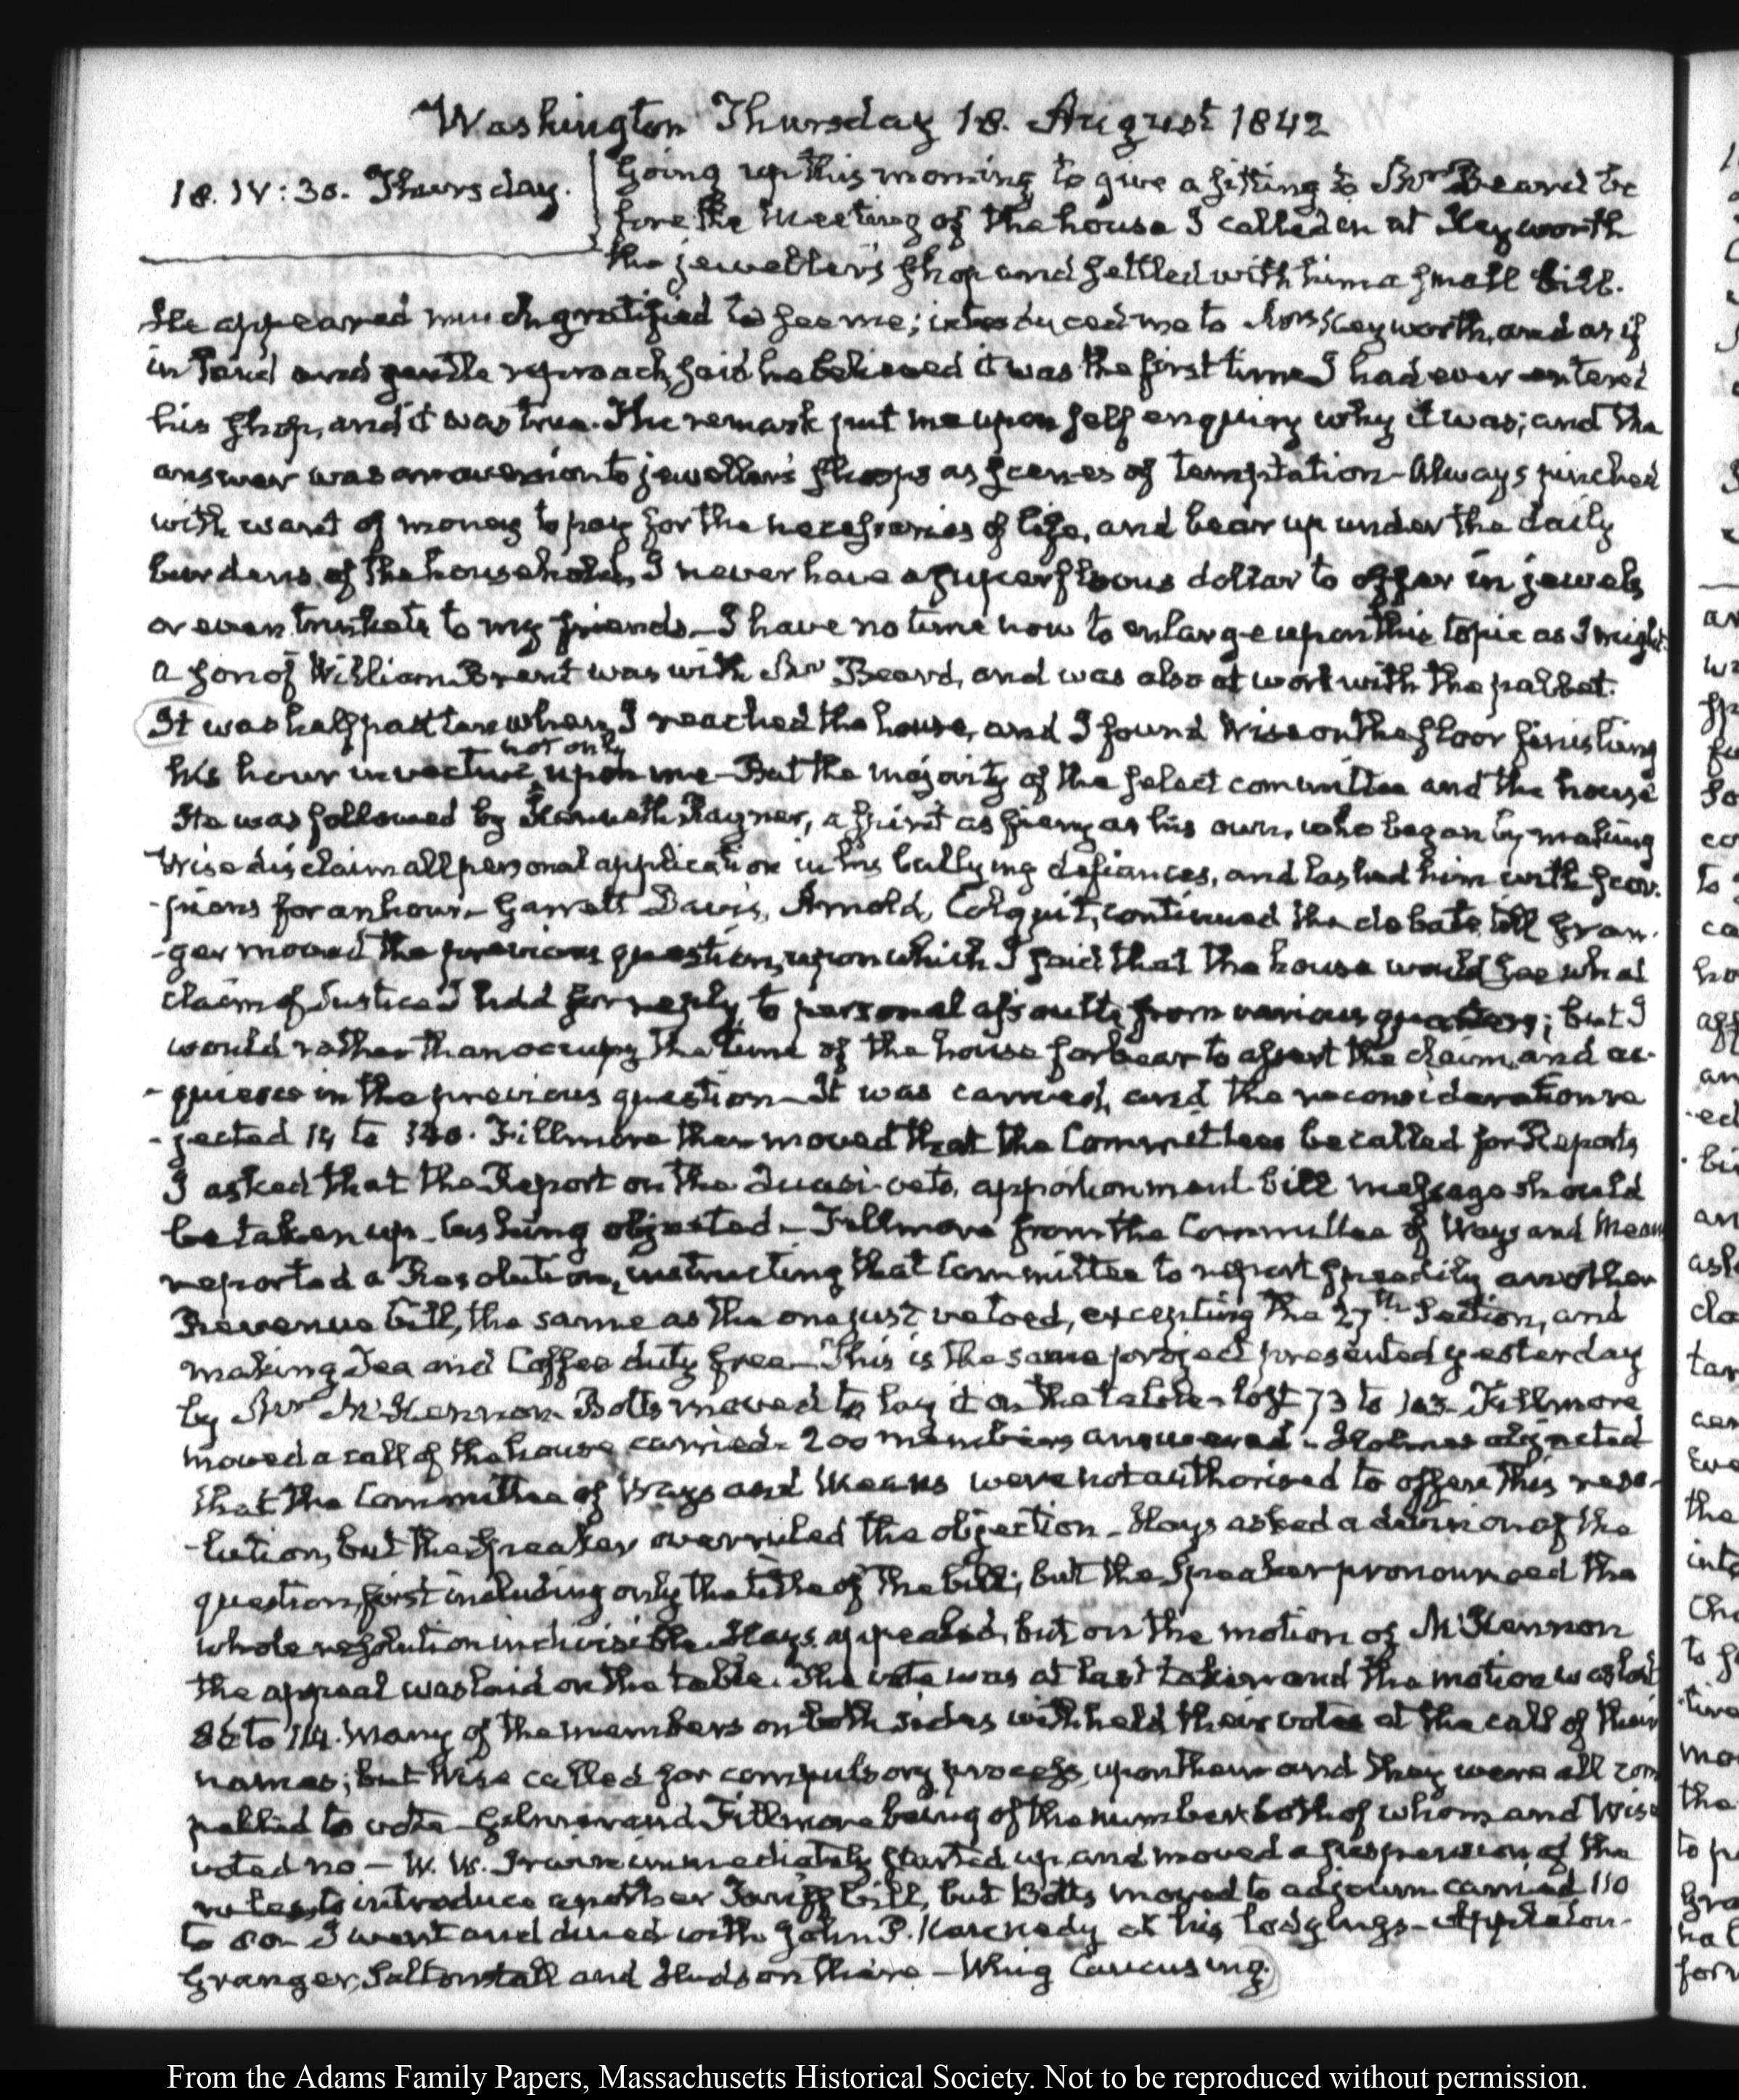 Washington Thursday 18. August 1842
18. IV:30. Thursday.
Going up this morning to give a sitting to Mr Beard be
fore the meeting of the house I called in at Keyworth
the jeweller's shop and settled with him a small bill.
He appeared much gratified to see me; introduced me to Mrs Keyworth, and as if
in kind and gentle reproach, said he believed it was the first time I had ever entered
his shop, and it was true. The remark put me upon self enquiry why it was; and the
answer was an aversion to jeweller's shops as scenes of temptation - Always pinched
with want of money to pay for the necessaries of life, and bear up under the daily
burdens of the household, I never have a superfluous dollar to offer in jewels
or even trinkets to my friends - I have no time now to enlarge upon this topic as I might.
a son of William Brent was with Mr Beard, and was also at work with the pallet.
It was half past ten when I reached the house, and I found Wise on the floor finishing
his hour invective not only upon me - But the majority of the select committee and the house
He was followed by Kenneth Rayner, a spirit as fiery as his own, who began by making
Wise disclaim all personal application in his bullying defiances, and lashed him with scor-
-pions for an hour - Garrett Davis, Arnold, Colquit, continued the debate, till Gran-
-ger moved the previous question, upon which I said that the house would see what
claim of Justice I had for reply to personal assaults from various quarters; but I
would rather than occupy the time of the house forbear to assert the claim, and ac-
-quiesce in the previous question - It was carried, and the reconsideration re
-jected 14 to 140. Fillmore then moved that the Committees be called for Reports
I asked that the Report on the Quasi-veto, apportionment bill message should
be taken up - Cushing objected - Fillmore from the Committee of Ways and Means
reported a Resolution, instructing that Committee to report speedily another
Revenue bill, the same as the one just vetoed, excepting the 27th Section, and
making Tea and Coffee duty free - This is the same project presented yesterday
by Mr McKennon. Botts moved to lay it on the table - lost 73 to 103 - Fillmore
moved a call of the house carried - 200 members answered - Holmes objected
that the Committee of Ways and Means were not authorised to offer this reso-
-lution, but the Speaker overruled the objection - Hays asked a division of the
question, first including only the title of the bill; but the Speaker pronounced the
whole resolution indivisible. Hays appealed, but on the motion of McKennon
the appeal was laid on the table. The vote was at last taken and the motion was lost
86 to 114. Many of the members on both sides withheld their votes at the call of their
names; but Wise called for compulsory process upon them and they were all com
pelled to vote - Gilmer and Fillmore being of the number both of whom and Wise
voted no - W. W. Irwin immediately started up and moved a suspension of the
rules, to introduce another Tariff bill, but Botts moved to adjourn carried 110
to 80 - I went and dined with John P. Kennedy at his lodgings - Appleton
Granger, Saltonstall and Hudson there - Whig Caucusing.
From the Adams Family Papers, Massachusetts Historical Society. Not to be reproduced without permission.